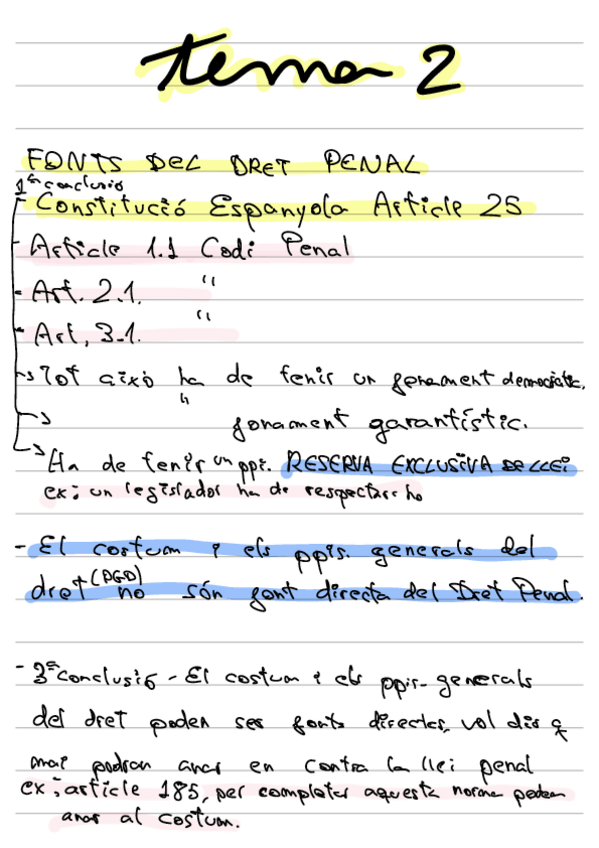 tema 2
FONTS DEL DRET PENAL
1ª conclusió
- Constitució Espanyola Article 25
- Article 1.1 Codi Penal
- Art. 2.1. "
- Art, 3.1. "
→ Tot això ha de tenir un fonament democràtic.
→ " fonament garantístic.
→ Ha de tenir un ppi. RESERVA EXCLUSIVA DE LLEI
ex: un legislador ha de respectar ho
- El costum i els ppis. generals del
dret (PGD) no són font directa del Dret Penal.
- 3ª conclusió - El costum i els ppis. generals
del dret poden ser fonts directes, vol dir q
mai podran anar en contra la llei penal
ex: article 185, per completar aquesta norma podem
anar al costum.